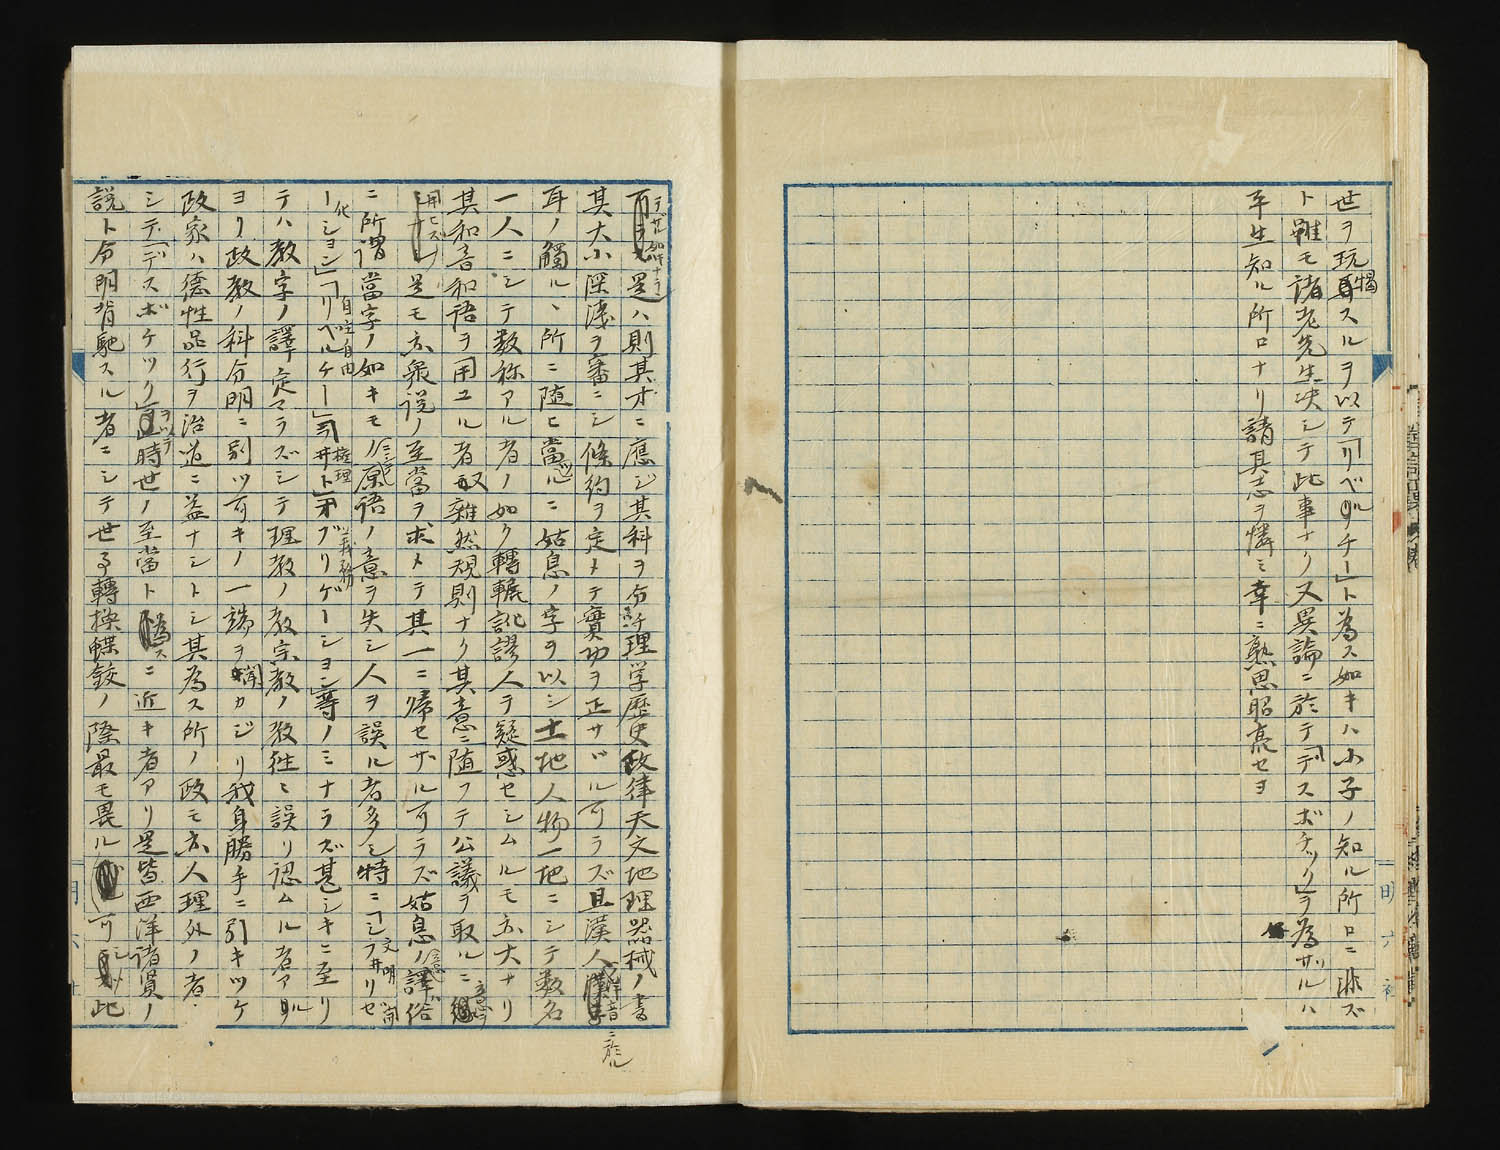 世ヲ玩弄スルヲ以テ「リベルチー」ト為ス如キハ小子ノ知ル所ロニ非ズ
ト雖モ諸老先生決シテ此事ナリ又異論ニ於テ「デスボチック」ヲ為サヾルハ
平生知ル所ロナリ請其志ヲ憐ミ幸ニ熟思昭亮セヨ
是ハ則其才ニ應ジ其科ヲ分チ理学歴史政律天文地理器械ノ書
其大小深淺ヲ審ニシ條約ヲ定メテ實功ヲ正サヾル可ラズ且漢人
耳ノ觸ルヽ所ニ随ヒ當ルニ姑息ノ字ヲ以シ土地人物一地ニシテ数名
一人ニシテ数称アル者ノ如ク轉輾訛謬人テ疑惑セシムルモ亦大ナリ
其和音和語ヲ用ユル者雑然規則ナク其意ニ随フテ公議ヲ取ルニ
是モ亦衆説ノ至當ヲ求メテ其一ニ帰セザル可ラズ姑息ノ譯俗
ニ所謂當字ノ如キモノ原語ノ意ヲ失シ人ヲ誤ル者多シ特ニ「シフ井リゼ
ーション」「リベルケー」「ライト」ヲブリゲーション」等ノミナラズ甚シキニ至リ
テハ教字ノ譯定マラズシテ理教ノ教宗教ノ教往々誤リ認ムル者アリ
ヨリ政教ノ科分明ニ別ツ可キノ一端ヲカジリ我身勝手ニ引キツケ
政家ハ徳性品行ヲ治道ニ益ナシトシ其為ス所ノ政モ亦人理外ノ者
シテ「デスボケック」ヲ以テ時世ノ至當ト為スニ近キ者アリ是皆西洋諸賢ノ
説ト分明背馳スル者ニシテ世ヿ轉換蝶鉸ノ際最モ畏ル可シ此
明六社